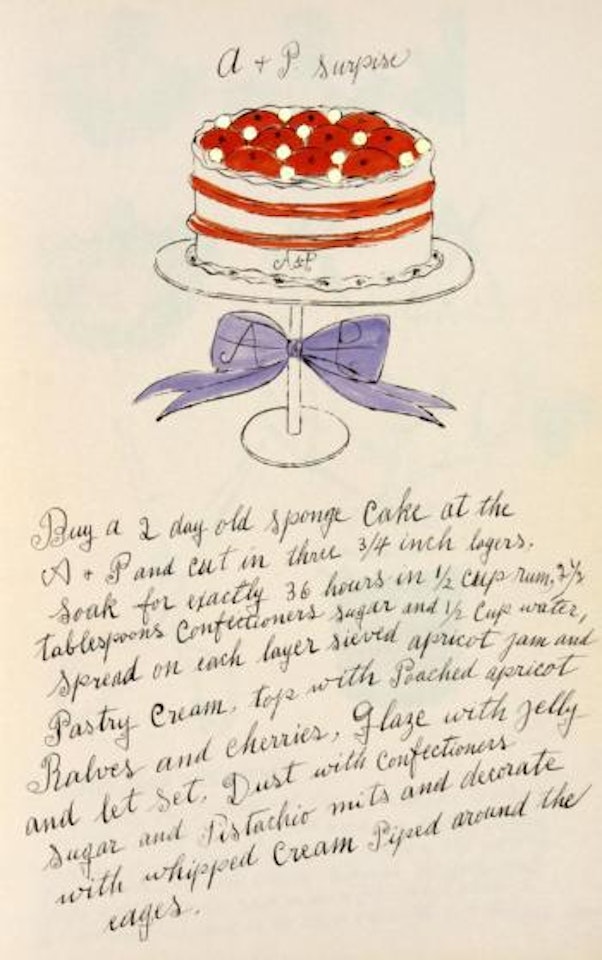 A + P surprise
A&P
A P
Buy a 2 day old sponge Cake at the
A + P and cut in three 3/4 inch layers.
Soak for exactly 36 hours in 1/2 cup rum, 2 1/2
tablespoons Confectioners sugar and 1/2 Cup water,
Spread on each layer sieved apricot jam and
Pastry Cream, top with Poached apricot
Halves and cherries, Glaze with jelly
and let set. Dust with confectioners
sugar and Pistachio nuts and decorate
with whipped Cream Piped around the
edges.